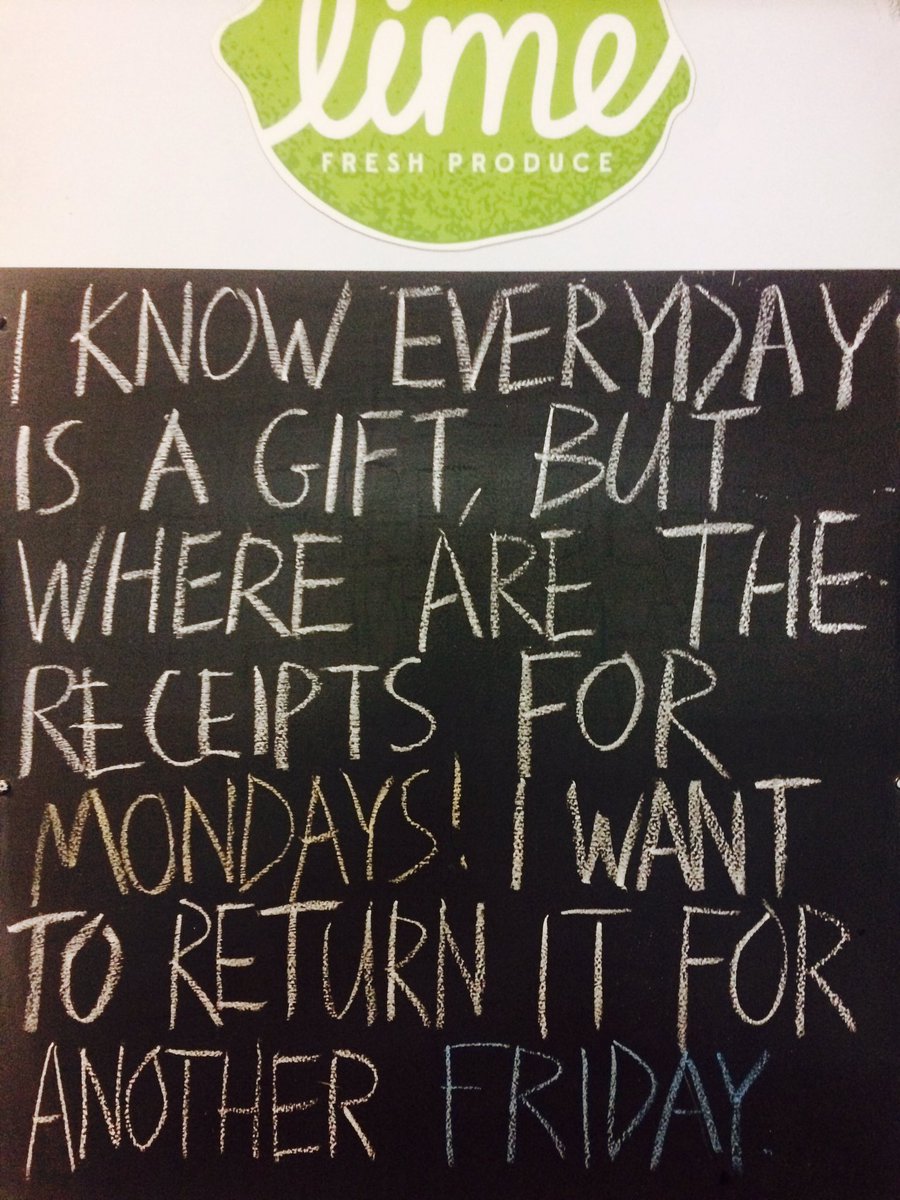 lime
FRESH PRODUCE
I KNOW EVERYDAY
IS A GIFT, BUT
WHERE ARE THE
RECEIPTS FOR
MONDAYS! I WANT
TO RETURN IT FOR
ANOTHER FRIDAY.